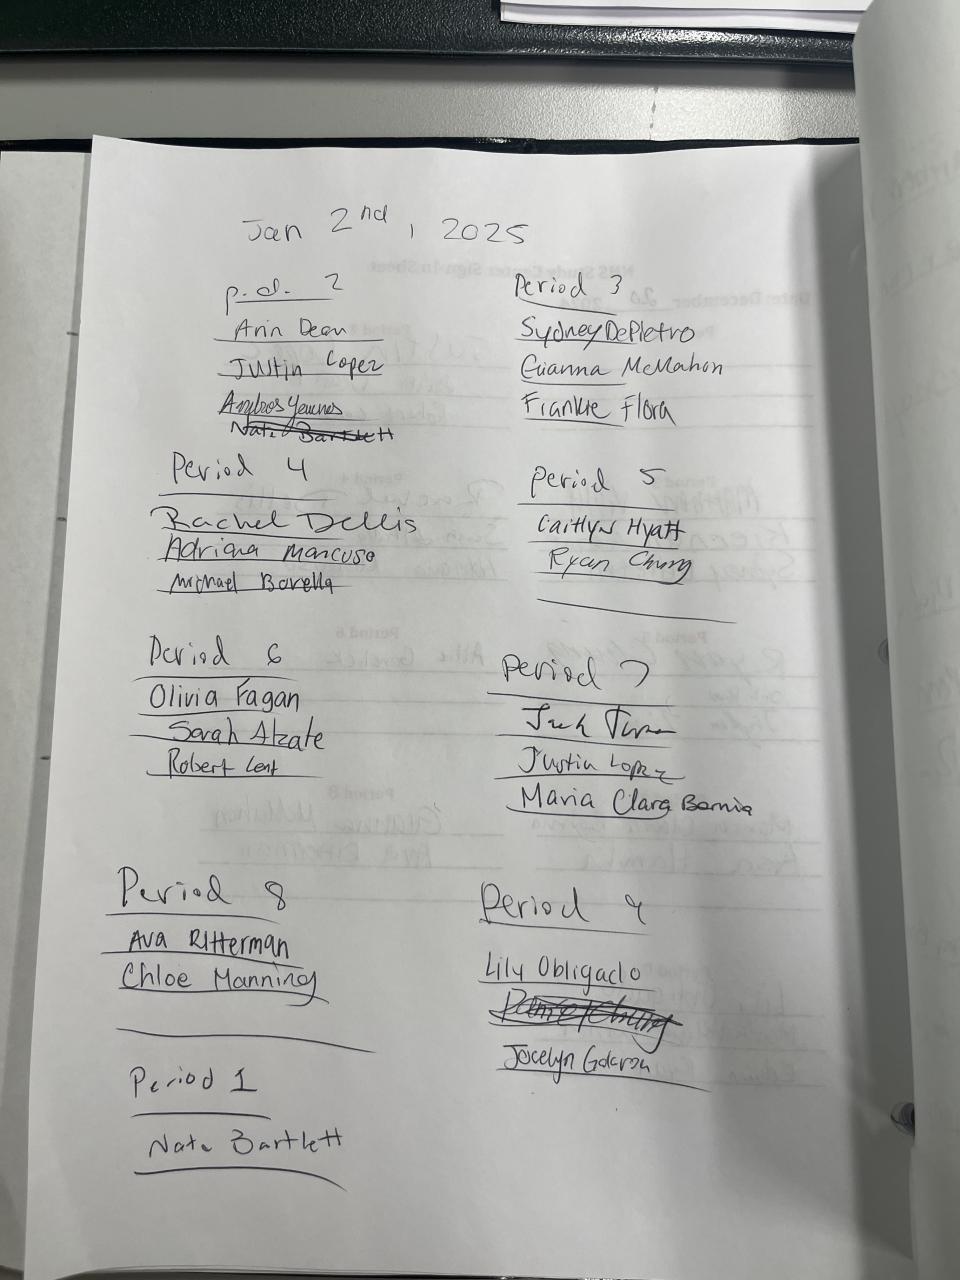 Jan 2nd, 2025
p.d. 2
Ann Dean
Justin Lopez
Nate Bartlett
Period 3
Sydney DePietro
Gianna McMahon
Frankie Flora
Period 4
Rachel Dellis
Adriana Mancuso
Michael Barella
Period 5
Caitlyn Hyatt
Ryan Chung
Period 6
Olivia Fagan
Sarah Alzate
Robert Lent
Period 7
Jack
Justin Lopez
Maria Clara Bernia
Period 8
Ava Ritterman
Chloe Manning
Period 9
Lily Obligado
Jocelyn
Period 1
Nate Bartlett